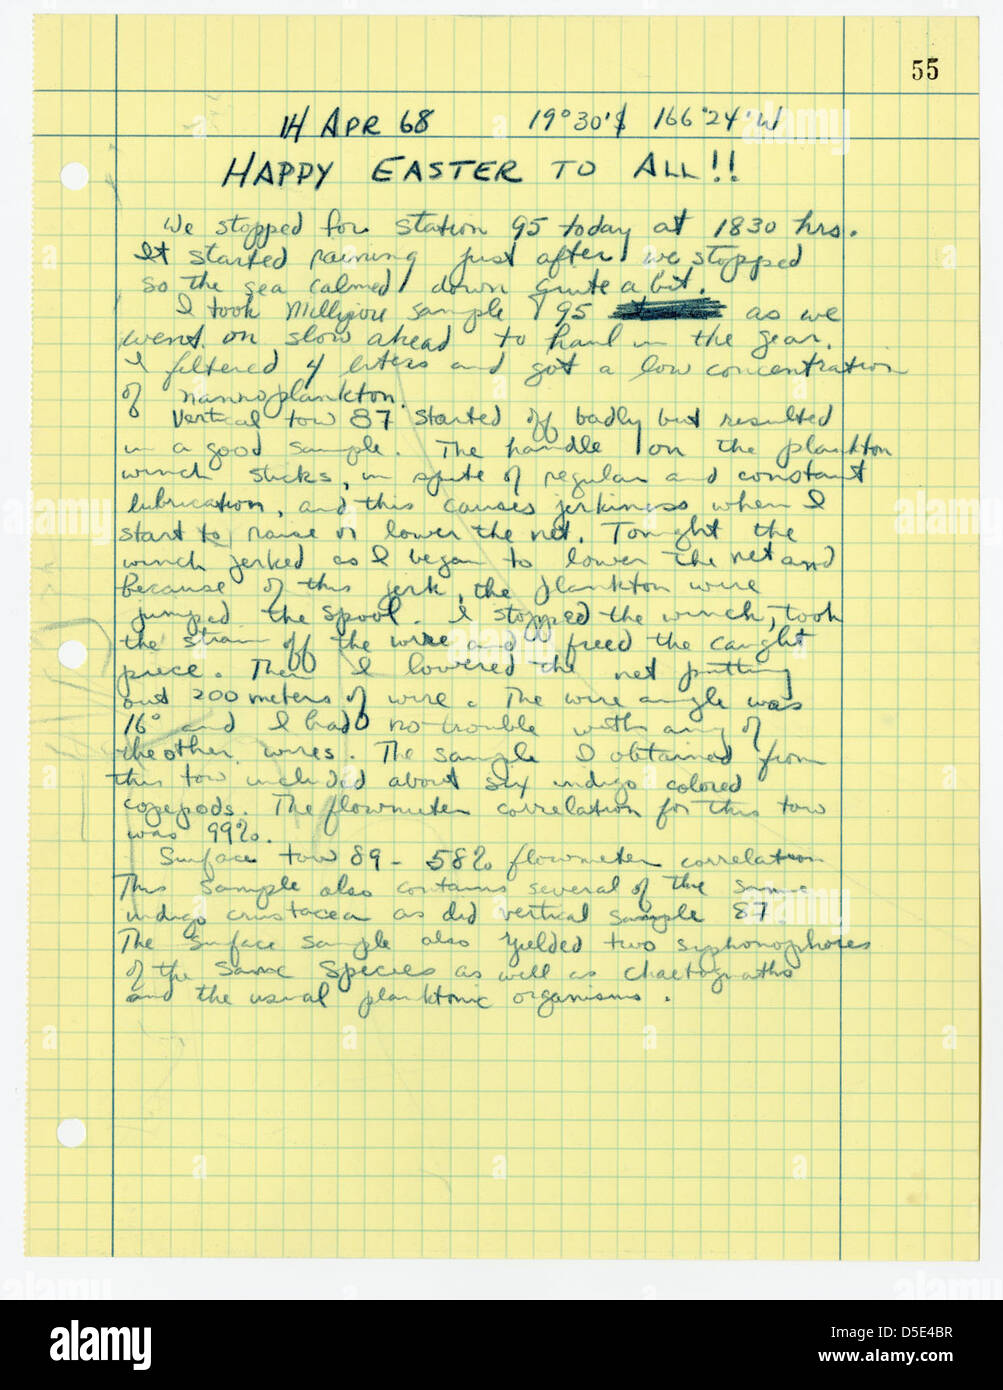 55
14 APR 68 19°30'S 166°24'W
HAPPY EASTER TO ALL!!
We stopped for station 95 today at 1830 hrs.
It started raining just after we stopped
so the sea calmed down quite a bit.
I took Millipore sample 95 as we
went on slow ahead to haul in the gear.
I filtered 4 liters and got a low concentration
of nannoplankton.
Vertical tow 87 started off badly but resulted
in a good sample. The handle on the plankton
winch sticks, in spite of regular and constant
lubrication, and this causes jerkiness when I
start to raise or lower the net. Tonight the
winch jerked as I began to lower the net and
because of this jerk, the plankton wire
jumped the spool. I stopped the winch, took
the strain off the wire and freed the caught
piece. Then I lowered the net putting
out 200 meters of wire. The wire angle was
16° and I had no trouble with any of
the other wires. The sample I obtained from
this tow included about six indigo colored
copepods. The flowmeter correlation for this tow
was 99%.
Surface tow 89 - 58% flowmeter correlation
This sample also contains several of the same
indigo crustacea as did vertical sample 87.
The surface sample also yielded two syphonophores
of the same species as well as chaetognaths
and the usual planktonic organisms.
alamy
Image ID: D5E4BR
www.alamy.com